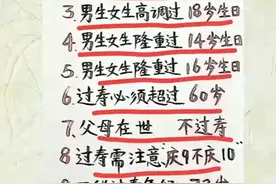 3. 男生女生高调过18岁生日
4. 男生女生隆重过14岁生日
5. 男生女生隆重过16岁生日
6. 过寿必须超过60岁
7. 父母在世 不过寿
8 过寿需注意"庆9不庆10"